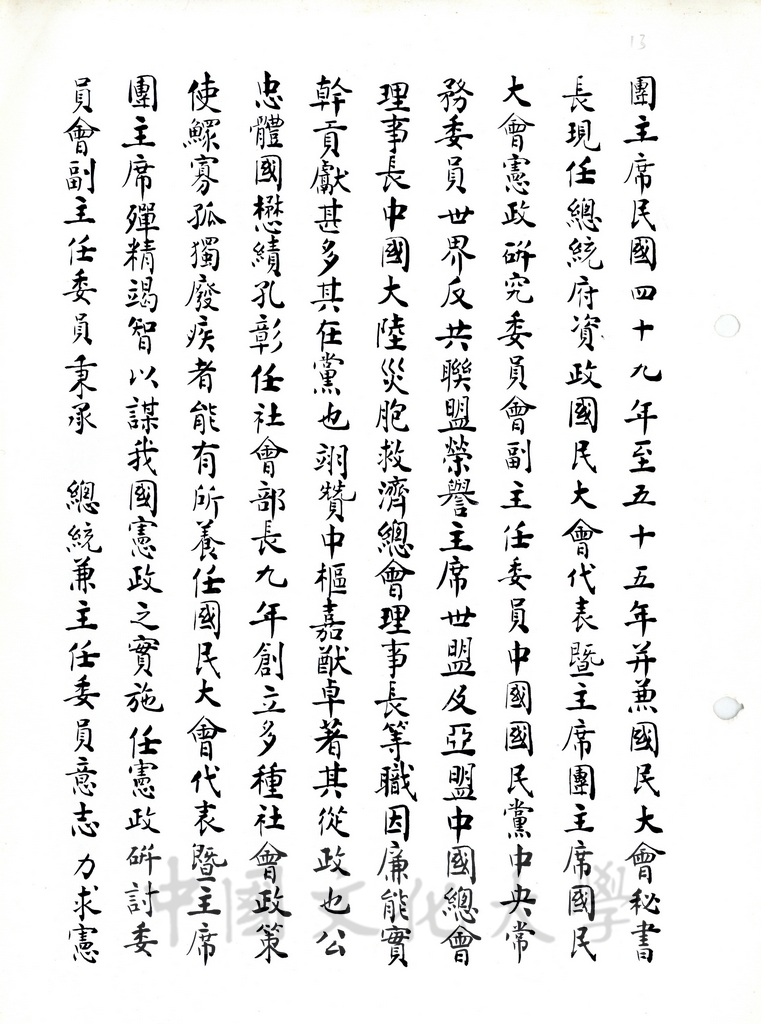 13
團主席民國四十九年至五十五年并兼國民大會秘書
長現任總統府資政國民大會代表暨主席團主席國民
大會憲政研究委員會副主任委員中國國民黨中央常
務委員世界反共聯盟榮譽主席世盟及亞盟中國總會
理事長中國大陸災胞救濟總會理事長等職因廉能實
幹貢獻甚多其在黨也翊贊中樞嘉猷卓著其從政也公
忠體國懋績孔彰任社會部長九年創立多種社會政策
使鰥寡孤獨廢疾者能有所養任國民大會代表暨主席
團主席殫精竭智以謀我國憲政之實施任憲政研討委
員會副主任委員秉承　總統兼主任委員意志力求憲
中國文化大學